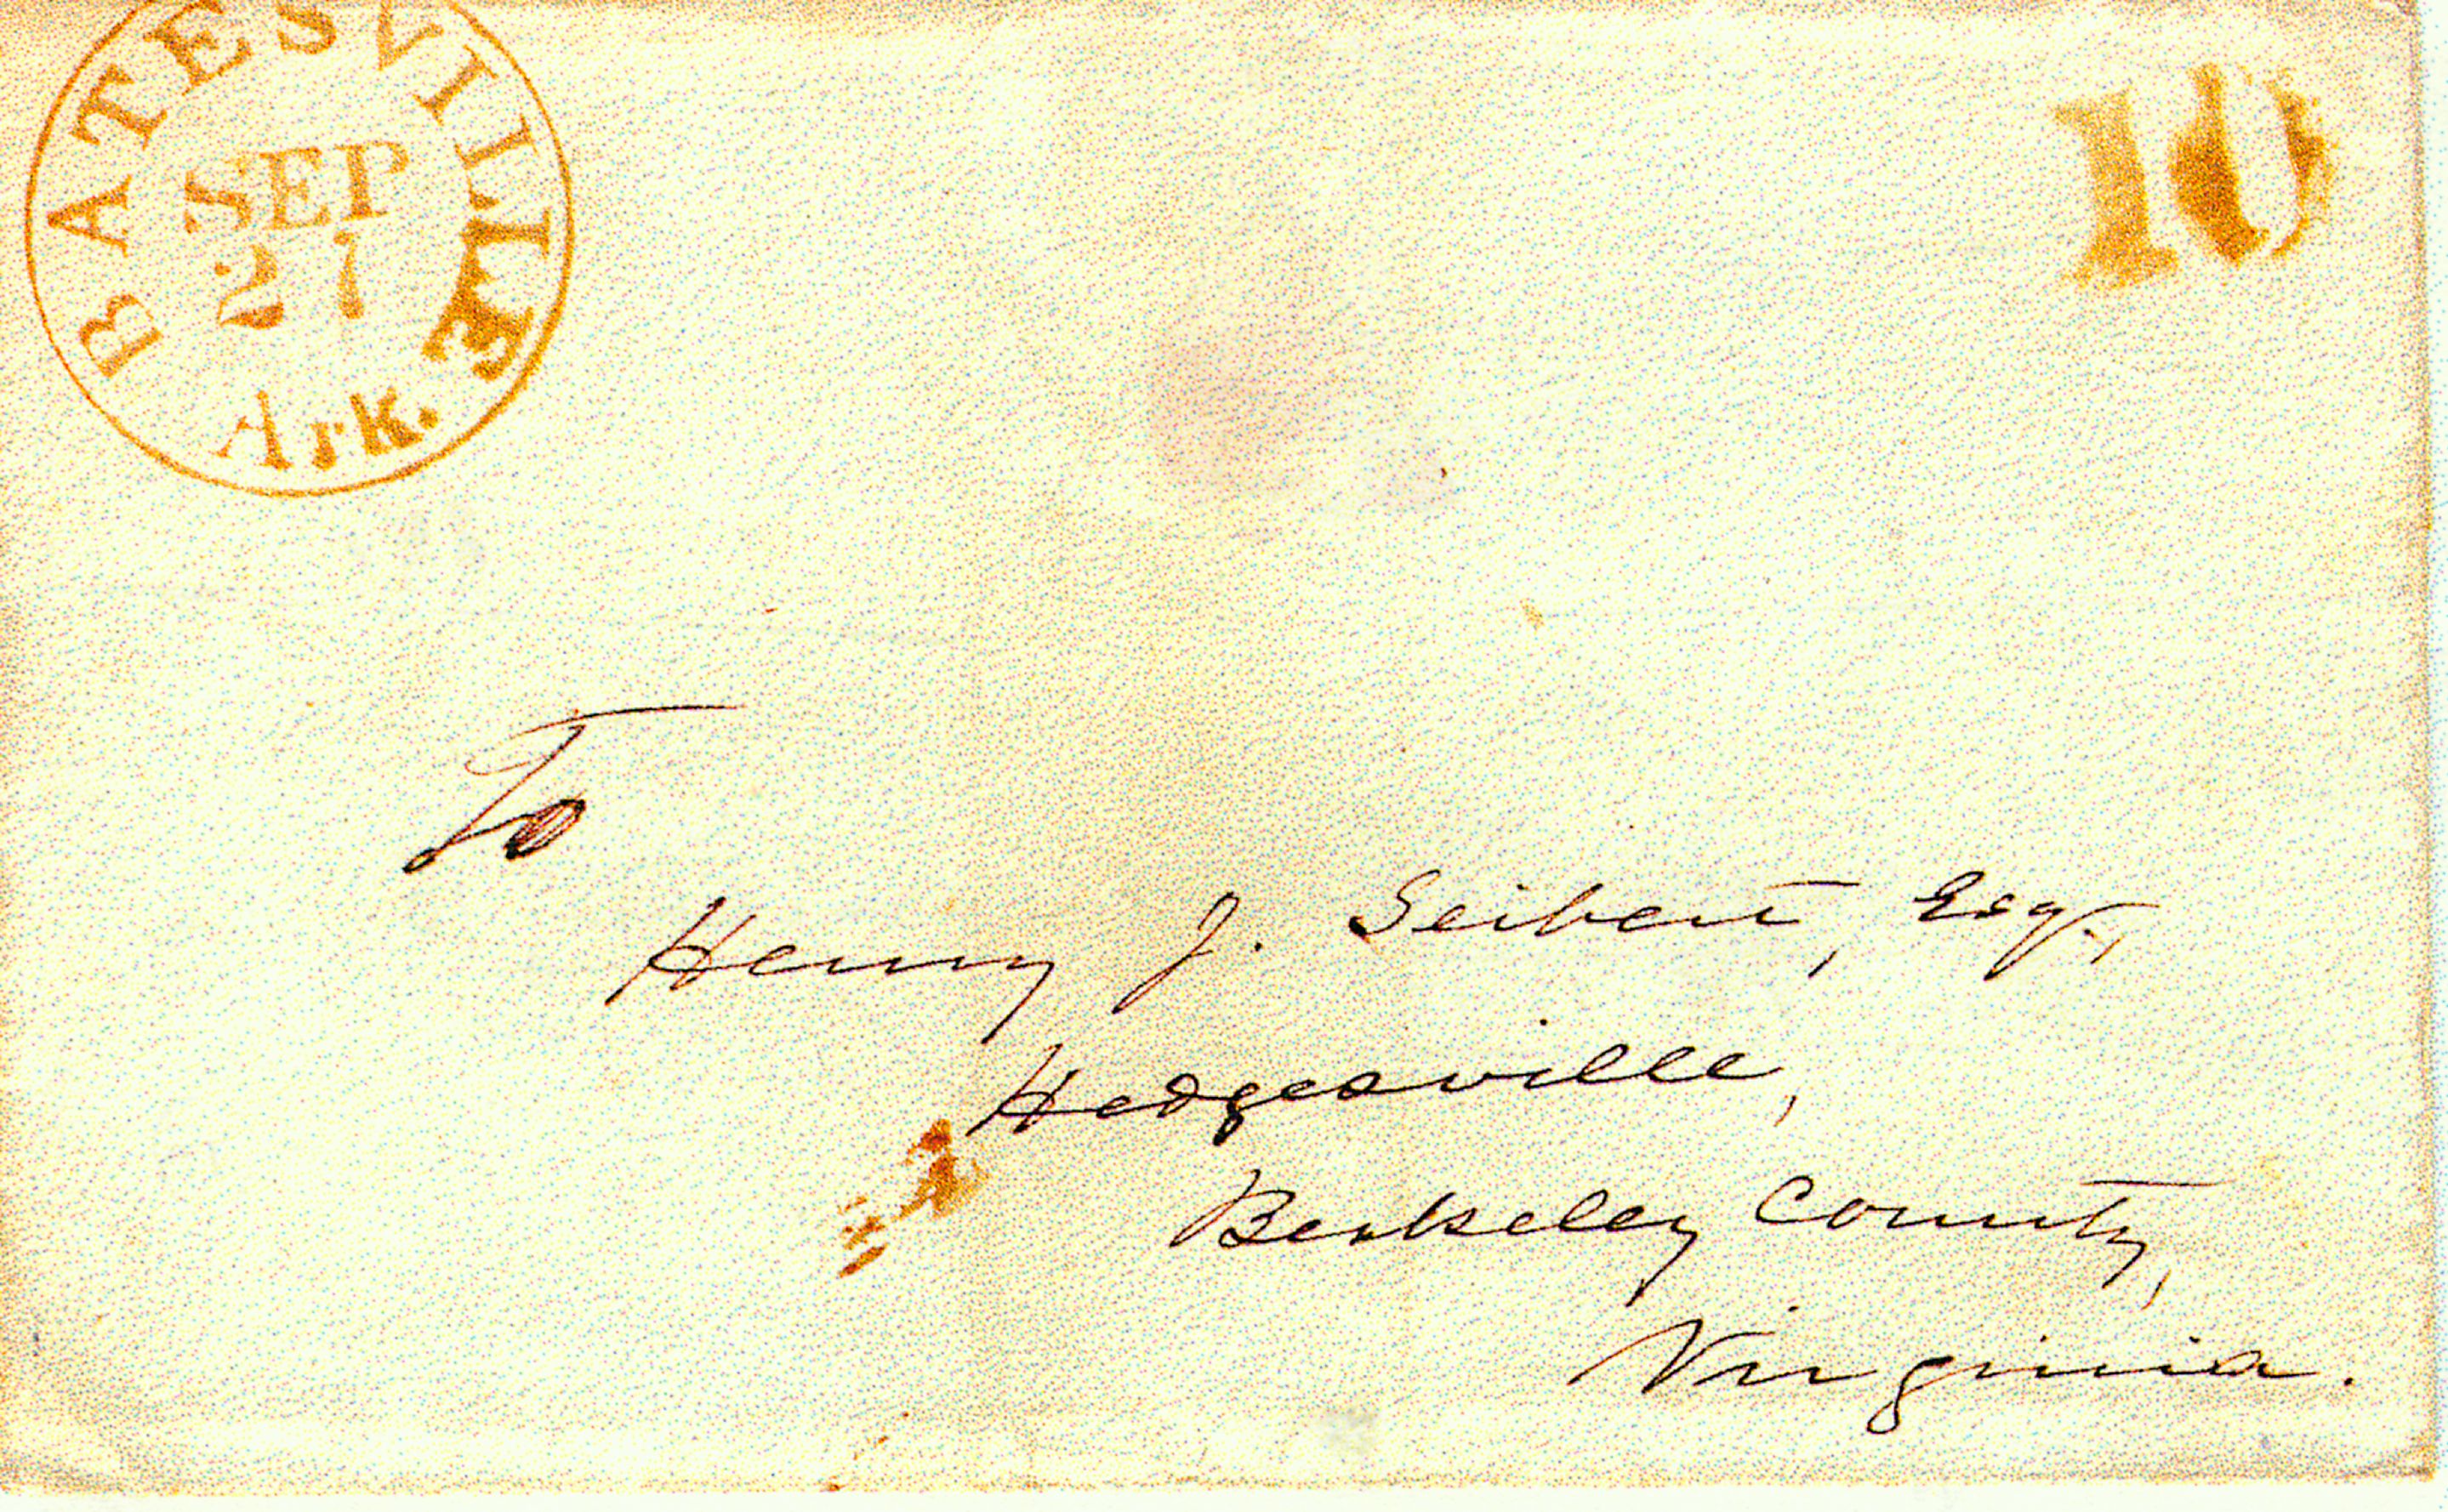 BATESVILLE
SEP
27
Ark.
10
To
Henry J. Seibert, Esq.,
Hedgesville,
Berkeley County,
Virginia.